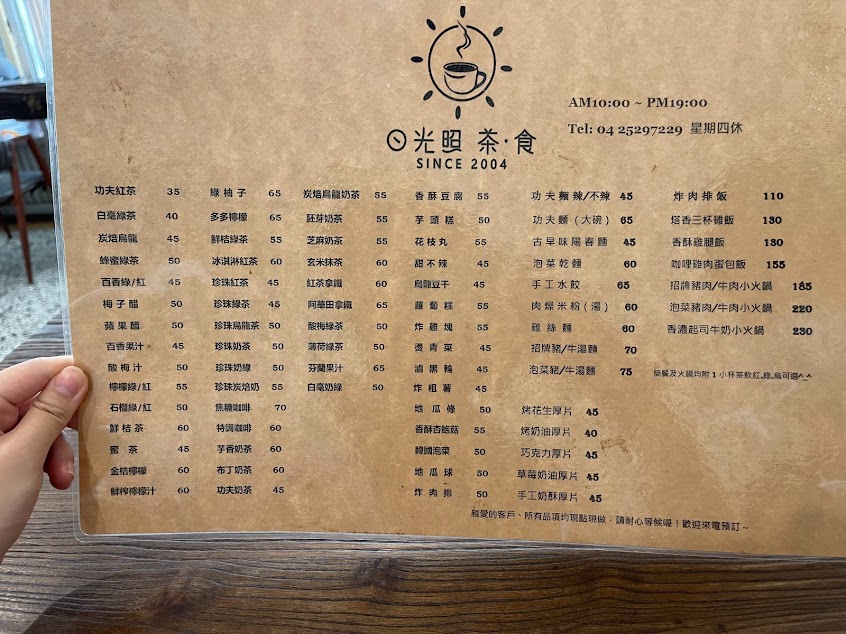 日光照 茶·食
SINCE 2004
AM10:00 ~ PM19:00
Tel: 04 25297229 星期四休
功夫紅茶 35
白毫綠茶 40
炭焙烏龍 45
蜂蜜綠茶 50
百香綠/紅 45
梅子醋 50
蘋果醋 50
百香果汁 45
酸梅汁 50
檸檬綠/紅 55
石榴綠/紅 50
鮮桔茶 60
蜜茶 45
金桔檸檬 60
鮮榨檸檬汁 60
綠柚子 65
多多檸檬 65
鮮桔綠茶 55
冰淇淋紅茶 60
珍珠紅茶 45
珍珠綠茶 45
珍珠烏龍茶 50
珍珠奶茶 50
珍珠奶綠 50
珍珠炭焙奶 55
焦糖咖啡 70
特調咖啡 60
芋香奶茶 60
布丁奶茶 60
功夫奶茶 45
炭焙烏龍奶茶 55
胚芽奶茶 55
芝麻奶茶 55
玄米抹茶 60
紅茶拿鐵 60
阿華田拿鐵 65
酸梅綠茶 50
薄荷綠茶 50
芬蘭果汁 65
白毫奶綠 50
香酥豆腐 55
芋頭糕 50
花枝丸 55
甜不辣 45
烏龍豆干 45
蘿蔔糕 55
炸雞塊 55
燙青菜 45
滷黑輪 45
炸粗薯 45
地瓜條 50
香酥杏鮑菇 55
韓國泡菜 50
地瓜球 50
炸肉排 50
功夫麵 辣/不辣 45
功夫麵(大碗) 65
古早味陽春麵 45
泡菜乾麵 60
手工水餃 65
肉燥米粉(湯) 60
雞絲麵 60
招牌豬/牛湯麵 70
泡菜豬/牛湯麵 75
烤花生厚片 45
烤奶油厚片 40
巧克力厚片 45
草莓奶油厚片 45
手工奶酥厚片 45
炸肉排飯 110
塔香三杯雞飯 130
香酥雞腿飯 130
咖哩雞肉蛋包飯 155
招牌豬肉/牛肉小火鍋 185
泡菜豬肉/牛肉小火鍋 220
香濃起司牛奶小火鍋 230
簡餐及火鍋均附1小杯茶飲紅.綠.烏可選^_^
親愛的客戶、所有品項均現點現做，請耐心等候喔！歡迎來電預訂~